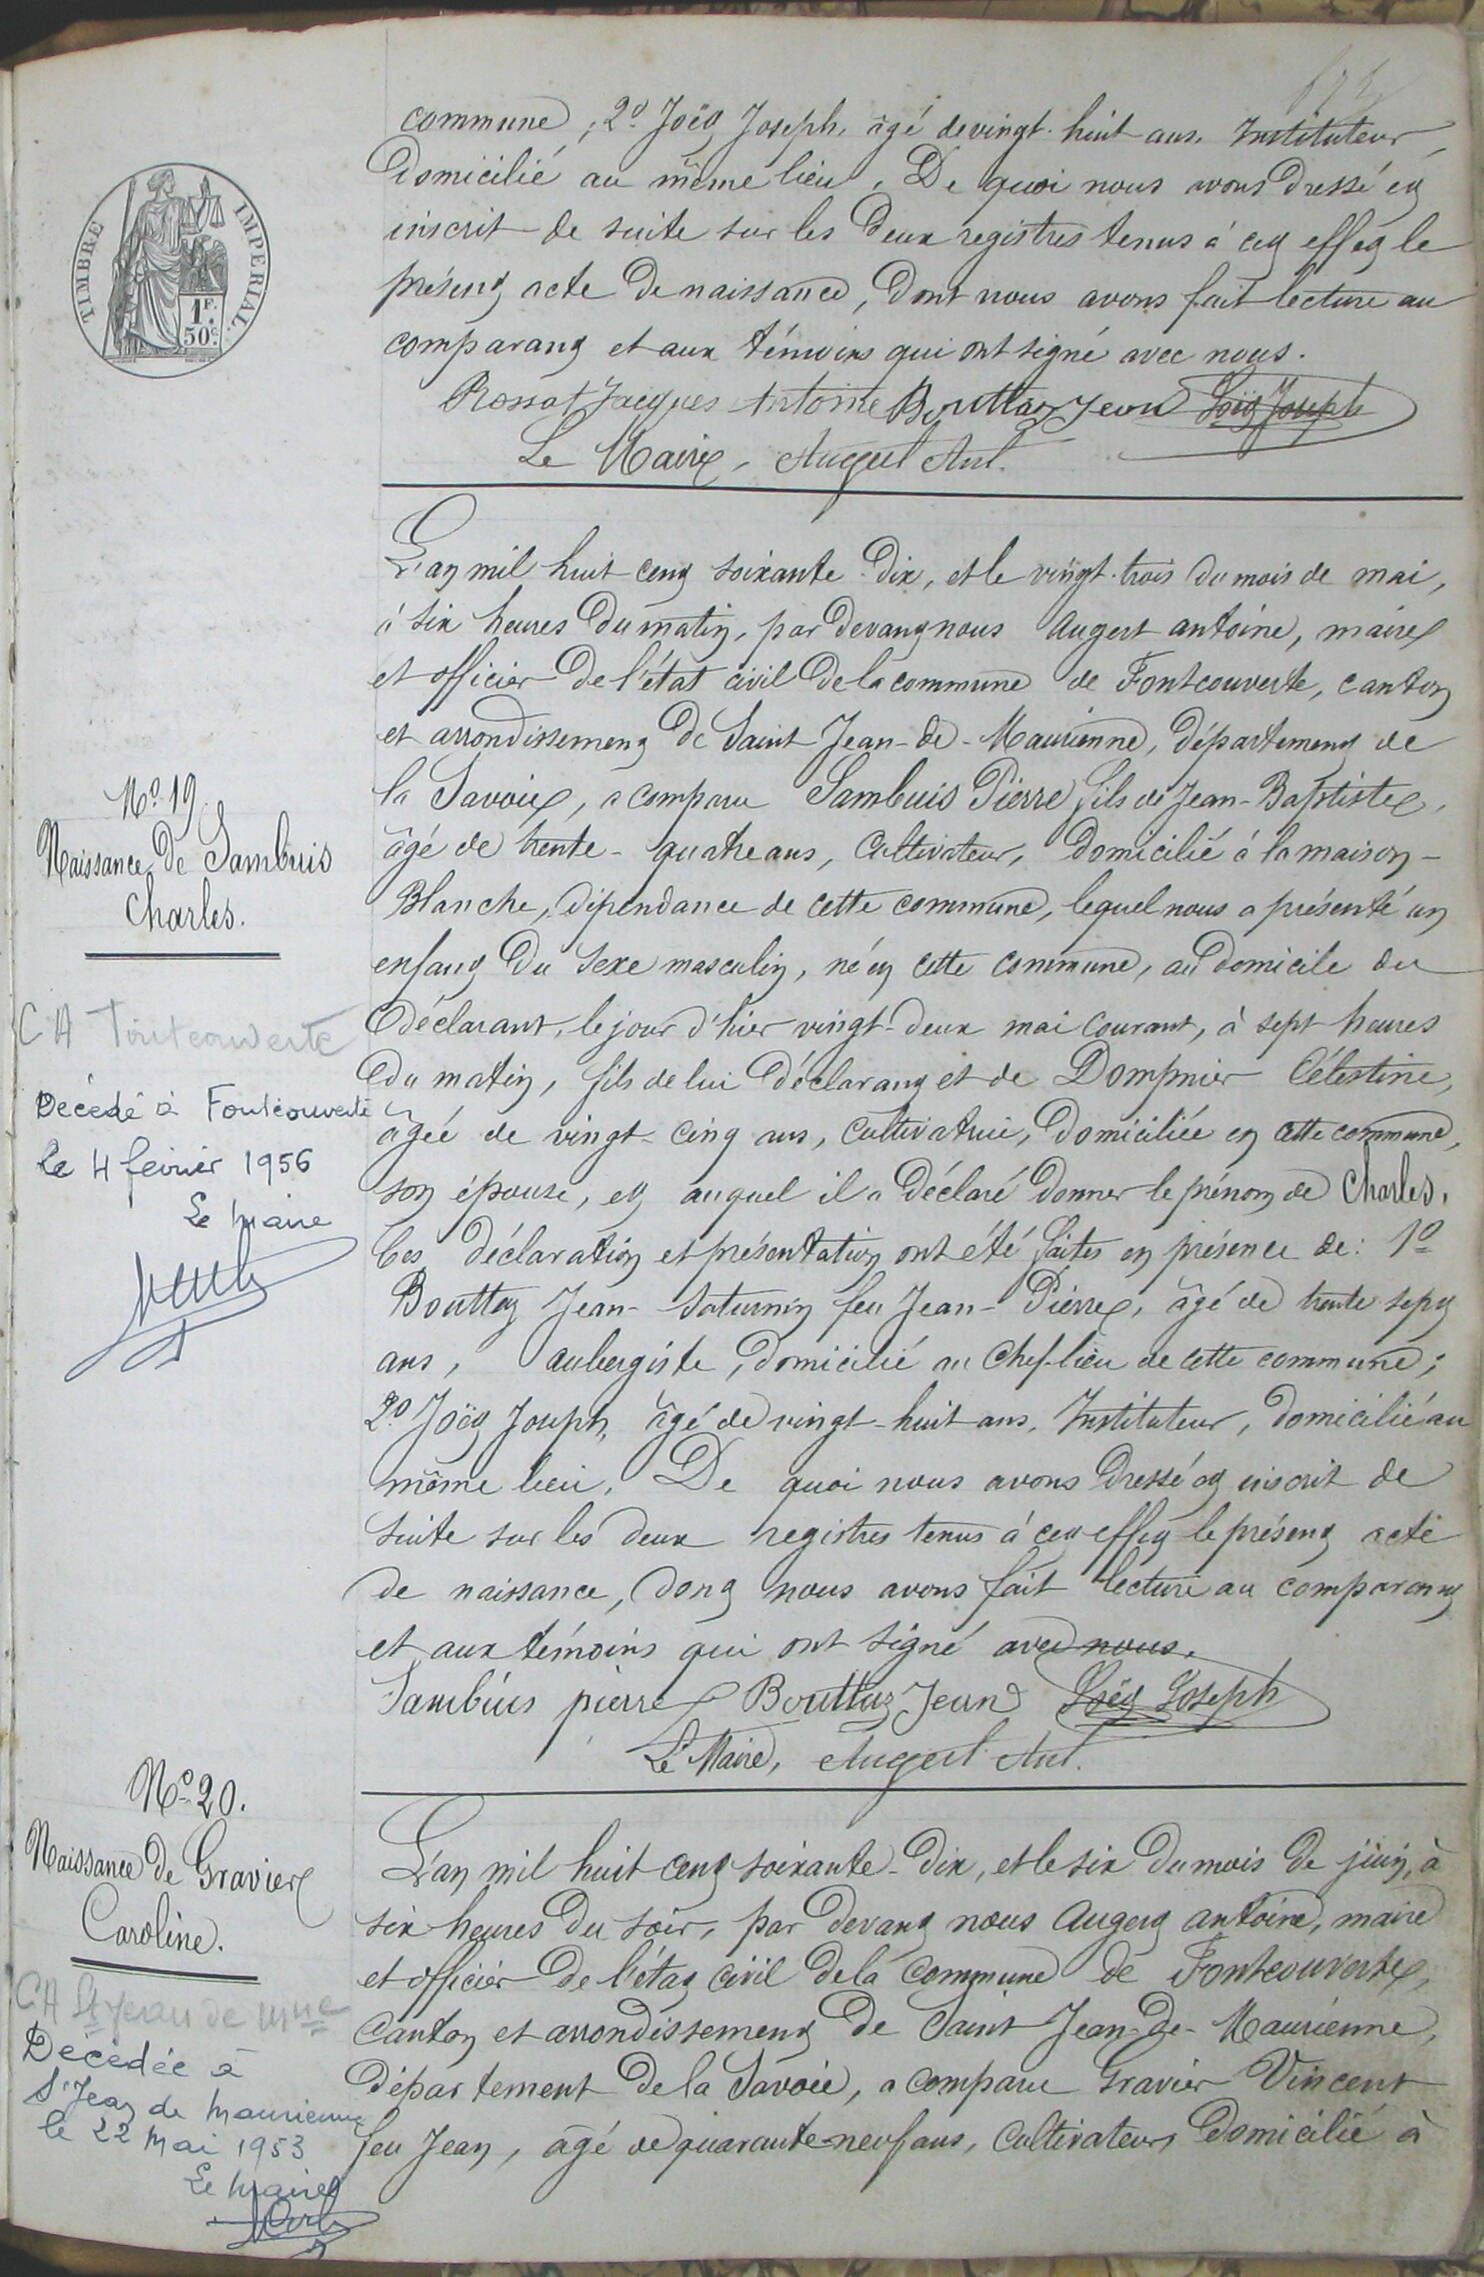 commune; 2º Joët Joseph, âgé de vingt-huit ans, Instituteur,
domicilié au même lieu. De quoi nous avons dressé et
inscrit de suite sur les deux registres tenus à cet effet le
présent acte de naissance, dont nous avons fait lecture au
comparant et aux témoins qui ont signé avec nous.
Rossat Jacques Antoine Bouttaz Jean Joët Joseph
Le Maire, Augert Ant.
TIMBRE IMPERIAL
1F.
50c.
L'an mil huit cent soixante-dix, et le vingt-trois du mois de mai,
à six heures du matin, par devant nous Augert antoine, maire
et officier de l'état civil de la commune de Fontcouverte, canton
et arrondissement de Saint Jean-de-Maurienne, département de
la Savoie, a comparu Sambuis Pierre fils de Jean-Baptiste,
âgé de trente-quatre ans, Cultivateur, domicilié à la maison-
Blanche, dépendance de cette commune, lequel nous a présenté un
enfant du sexe masculin, né en cette commune, au domicile du
déclarant, le jour d'hier vingt-deux mai courant, à sept heures
du matin, fils de lui déclarant et de Dompnier Célestine,
âgée de vingt-cinq ans, cultivatrice, domiciliée en cette commune,
son épouse, et auquel il a déclaré donner le prénom de Charles.
Ces déclaration et présentation ont été faites en présence de: 1º
Bouttaz Jean-Saturnin feu Jean-Pierre, âgé de trente-sept
ans, aubergiste, domicilié au Chef-lieu de cette commune;
2º Joët Joseph, âgé de vingt-huit ans, Instituteur, domicilié au
même lieu. De quoi nous avons dressé et inscrit de
suite sur les deux registres tenus à cet effet le présent acte
de naissance, dont nous avons fait lecture au comparant
et aux témoins qui ont signé avec nous.
Sambuis pierre Bouttaz Jean Joët Joseph
Le Maire, Augert Ant.
Nº 19.
Naissance de Sambuis
Charles.
CA Fontcouverte
Décédé à Fontcouverte
le 4 février 1956
Le Maire
L'an mil huit cent soixante-dix, et le six du mois de juin, à
six heures du soir, par devant nous Augert antoine, maire
et officier de l'état civil de la commune de Fontcouverte,
canton et arrondissement de Saint Jean-de-Maurienne,
département de la Savoie, a comparu Gravier Vincent
feu Jean, âgé de quarante-neuf ans, Cultivateur, domicilié à
Nº 20.
Naissance de Gravier
Caroline.
CA St Jean de Mne
Décédée à
St Jean de Maurienne
le 22 Mai 1953
Le Maire